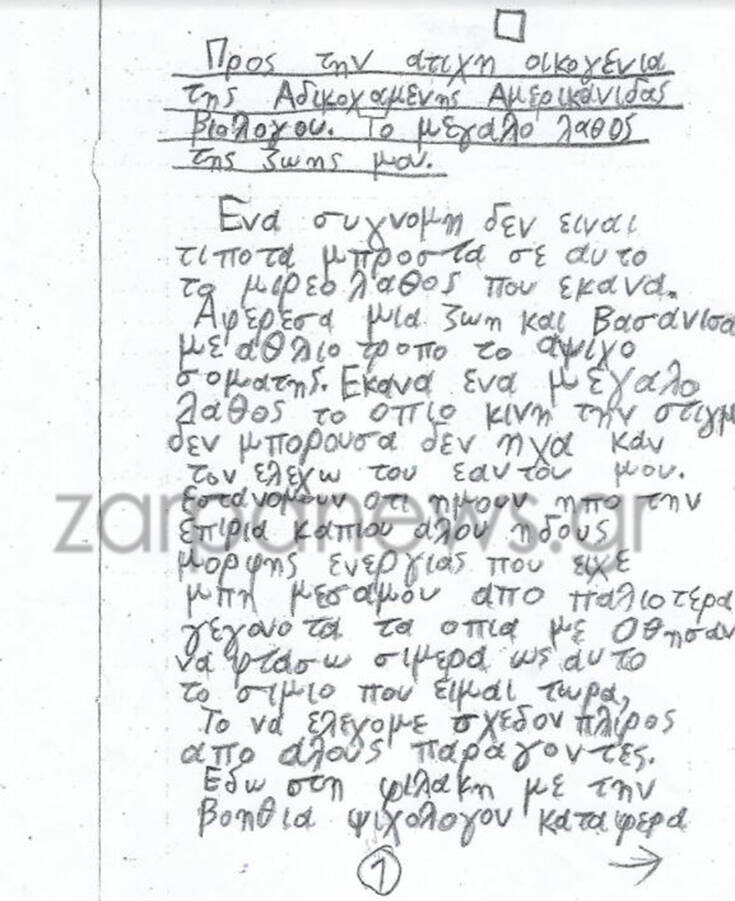 Προς την ατιχη οικογενια
της Αδικοχαμενης Αμερικανιδας
βιολογου. Το μεγαλο λαθος
της ζωης μου.
Ενα συγνομη δεν ειναι
τιποτα μπροστα σε αυτο
το μιρεο λαθος που εκανα.
Αφερεσα μια ζωη και Βασανισα
με αθλιο τροπο το αψιχο
σοματης. Εκανα ενα μεγαλο
λαθος το οπιο κινη την στιγμ
δεν μπορουσα δεν ηχα καν
τον ελεχω του εαυτου μου.
εστανομουν οτι ημουν ηπο την
επιρια καπιου αλου ηδους
μορφης ενεργιας που ειχε
μπη μεσαμου απο παλιοτερα
γεγονοτα τα οπια με Οθησαν
να φτασω σιμερα ως αυτο
το σιμιο που ειμαι τωρα,
Το να ελεχομε σχεδον πλιρος
απο αλους παραγοντες.
Εδω στη φιλακη με την
βοηθια ψιχολογου καταφερα
1 →
zarpanews.gr